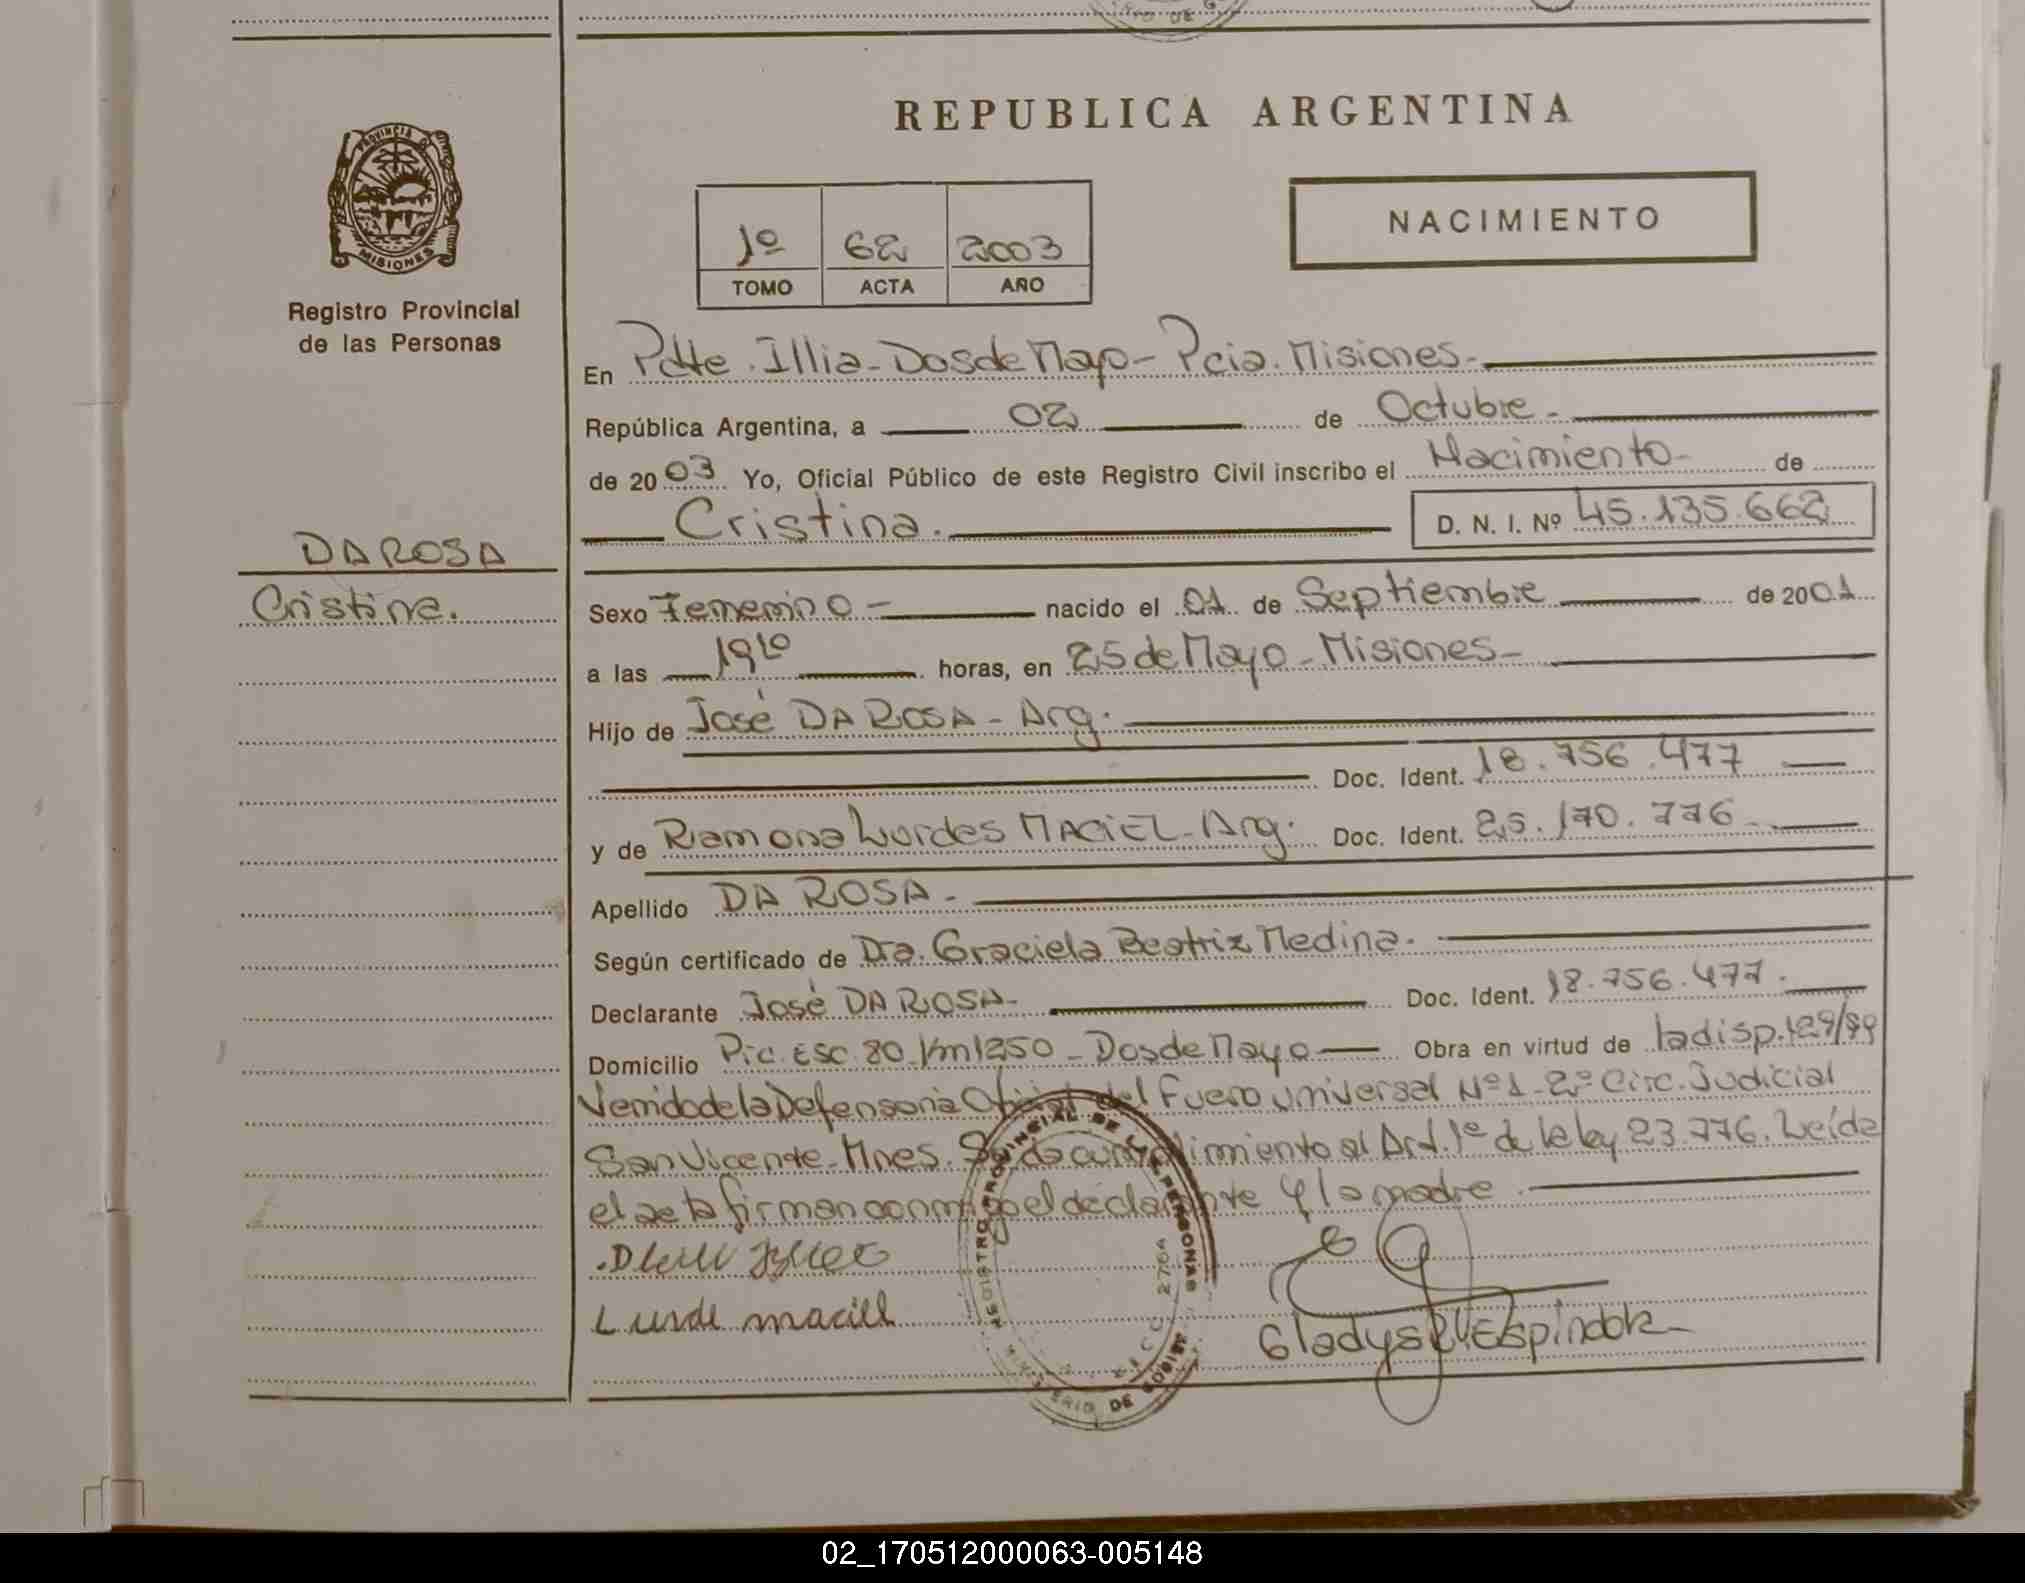 REPUBLICA ARGENTINA
PROVINCIA DE MISIONES
Registro Provincial
de las Personas
1º 62 2003
TOMO ACTA AÑO
NACIMIENTO
En Pdte. Illia - Dos de Mayo - Pcia. Misiones -
República Argentina, a 02 de Octubre -
de 2003 Yo, Oficial Público de este Registro Civil inscribo el Nacimiento - de
Cristina. D. N. I. Nº 45.135.662
DA ROSA
Cristina.
Sexo Femenino - nacido el 01 de Septiembre de 2001
a las horas, en 25 de Mayo - Misiones -
Hijo de José DA ROSA - Arg.
Doc. Ident. 18.756.477
y de Ramona Lurdes MACIEL - Arg. Doc. Ident. 25.170.776
Apellido DA ROSA -
Según certificado de Dra. Graciela Beatriz Medina.
Declarante José DA ROSA - Doc. Ident. 18.756.477.
Domicilio Pic. Esc. 80 Km 1250 - Dos de Mayo - Obra en virtud de la disp. 129/99
Venido de la Defensoria Oficial del Fuero Universal Nº 1 - 2º Circ. Judicial
San Vicente - Mnes. Se da cumplimiento al Art. 1º de la ley 23.776. Leída
el acta firman conmigo el declarante y la madre.
Lurde maciel
REGISTRO PROVINCIAL DE LAS PERSONAS
MINISTERIO DE GOBIERNO
Espindola
02_170512000063-005148